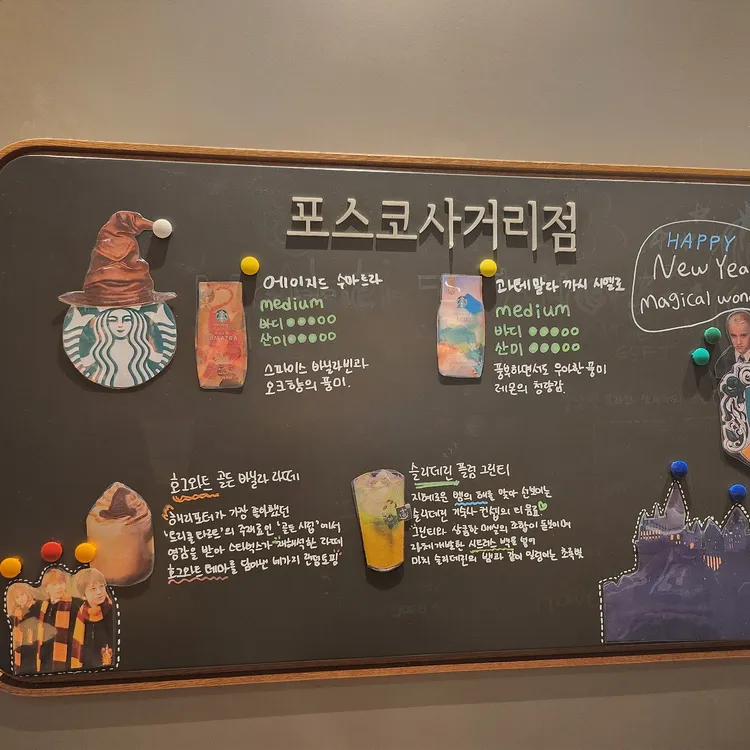 포스코사거리점
HAPPY
New Yea
Magical won
에이지드 수마트라
medium
바디
산미
스파이스 바닐라빈과
오크향의 풍미.
과테말라 까시 시엘로
medium
바디
산미
풍부하면서도 우아한 풍미
레몬의 청량감.
호그와트 골든 바닐라 라떼
해리포터가 가장 좋아했던
'트리클 타르트'의 주재료인 '골든 시럽'에서
영감을 받아 스타벅스가 재해석한 라떼
호그와트 테마를 담아낸 네가지 랜덤토핑
슬리데린 플럼 그린티
지혜로운 뱀의 해를 맞아 선보이는
슬리데린 기숙사 컨셉의 티 음료
그린티와 상큼한 매실의 조합이 돋보이며
시트러스 벅을
마치 슬리데린의 뱀과 같이 일렁이는 초록빛